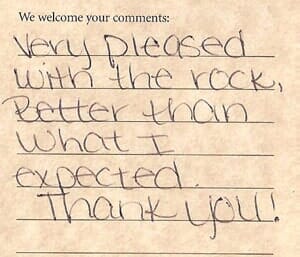 We welcome your comments:
Very pleased
with the rock,
Better than
what I
expected.
Thank you!